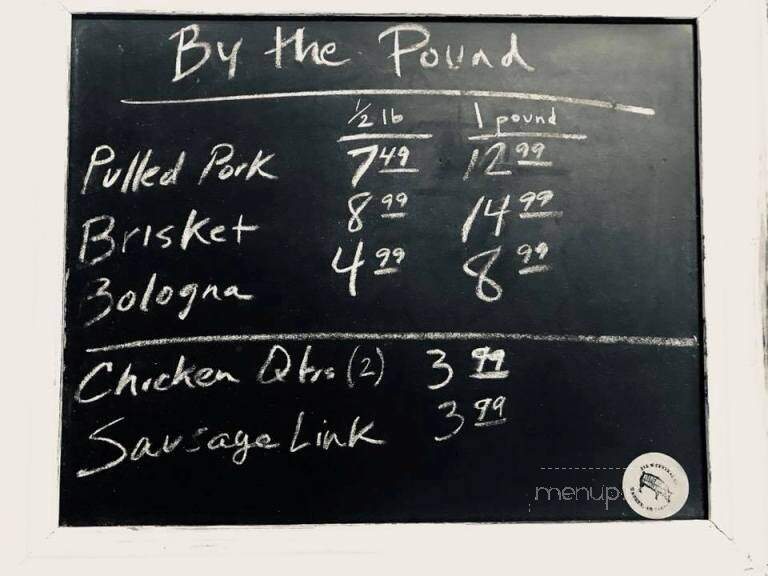 By the Pound
½ lb 1 pound
Pulled Pork 7 49 12 99
Brisket 8 99 14 99
Bologna 4 99 8 99
Chicken Qtrs (2) 3 99
Sausage Link 3 99
menup